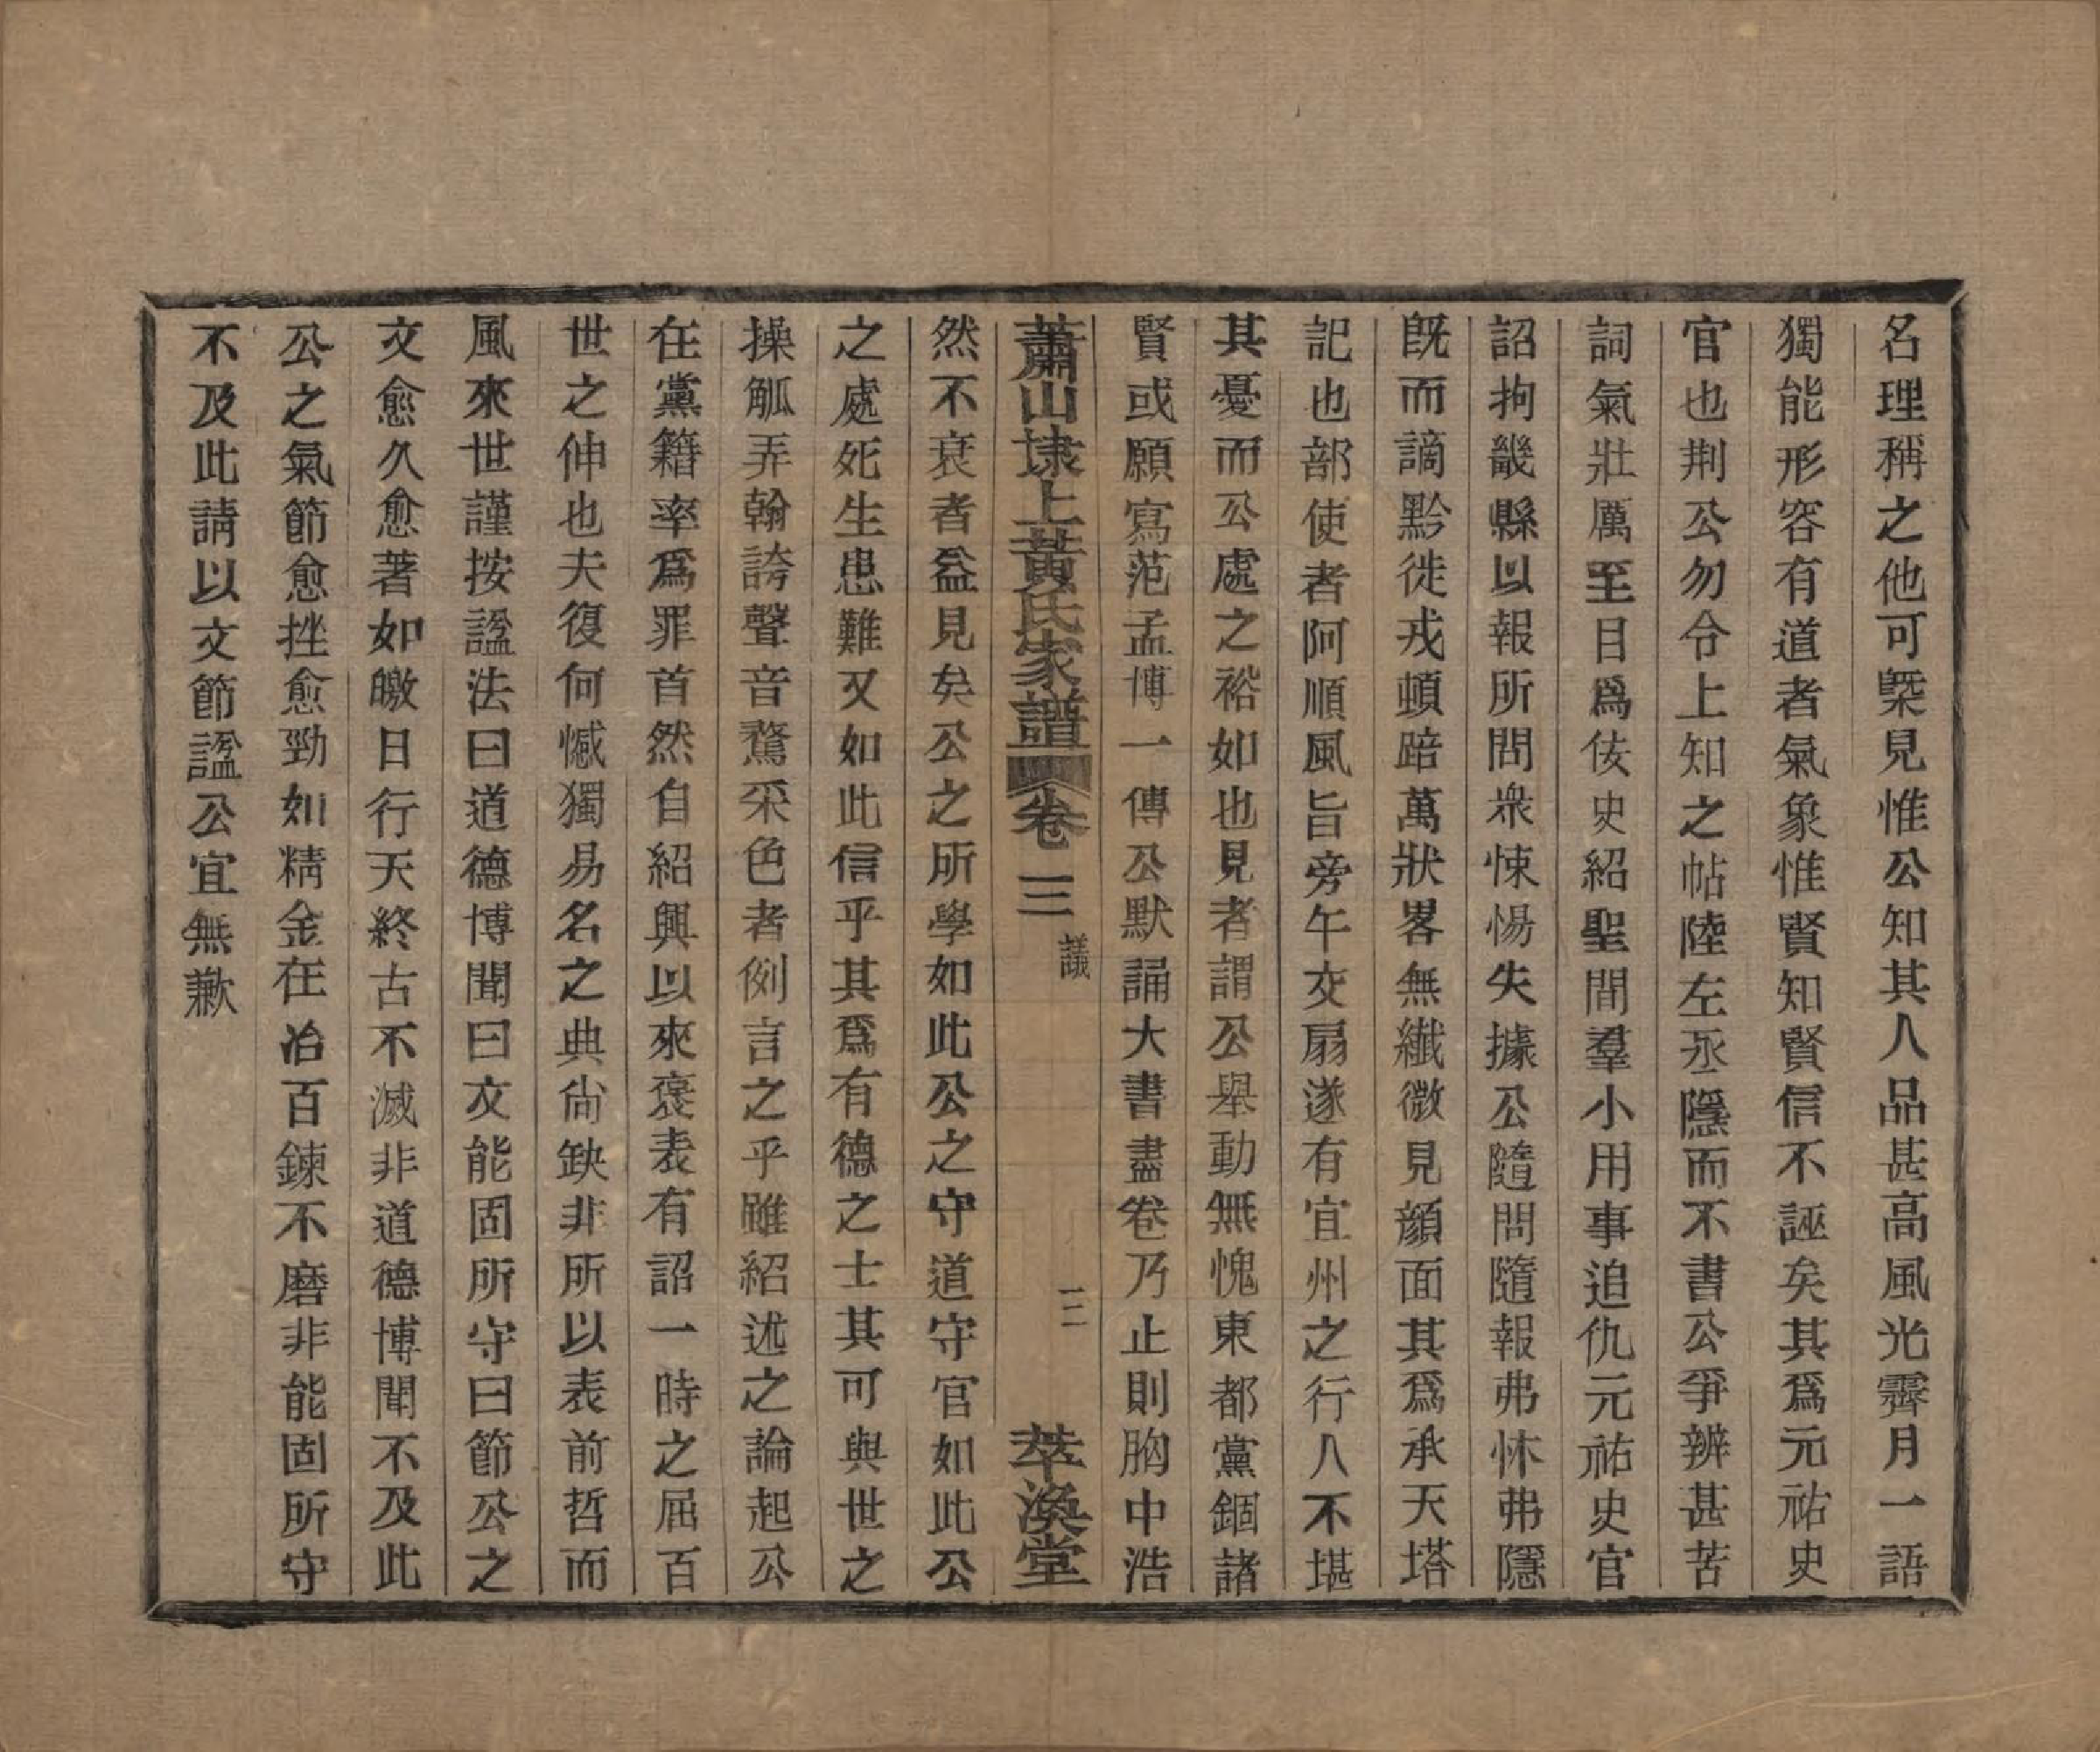 名理稱之他可槩見惟公知其人品甚高風光霽月一語
獨能形容有道者氣象惟賢知賢信不誣矣其爲元祐史
官也荆公勿令上知之帖陸左丞隱而不書公爭辨甚苦
詞氣壯厲至目爲佞史紹聖間羣小用事追仇元祐史官
詔拘畿縣以報所問衆悚惕失據公隨問隨報弗怵弗隱
旣而謫黔徙戎頓踣萬狀畧無纖微見顔面其爲承天塔
記也部使者阿順風旨旁午交扇遂有宜州之行人不堪
其憂而公處之裕如也見者謂公舉動無愧東都黨錮諸
賢或願寫范孟博一傳公默誦大書盡卷乃止則胸中浩
蕭山埭上黃氏家譜 卷三 諡議 三 萃渙堂
然不衰者益見矣公之所學如此公之守道守官如此公
之處死生患難又如此信乎其爲有德之士其可與世之
操觚弄翰誇聲音騖采色者例言之乎雖紹述之論起公
在黨籍率爲罪首然自紹興以來褒表有詔一時之屈百
世之伸也夫復何憾獨易名之典尙缺非所以表前哲而
風來世謹按諡法曰道德博聞曰文能固所守曰節公之
文愈久愈著如皦日行天終古不滅非道德博聞不及此
公之氣節愈挫愈勁如精金在冶百鍊不磨非能固所守
不及此請以文節諡公宜無歉